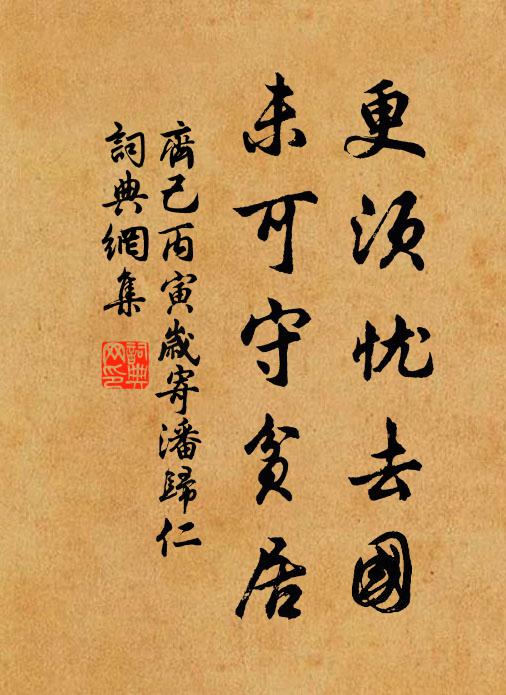 更須忧去國
未可守貧居
齊己丙寅歲寄潘歸仁
詞典網集
詞典
网印